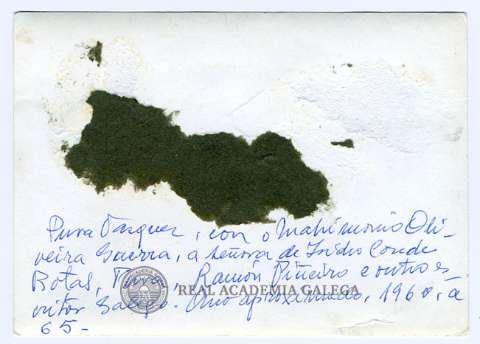 Pura Vázquez, con o Matrimonio Oli-
veira Guerra, a señora de Isidro Conde
Botas, Pura, Ramón Piñeiro e outro es-
critor galego. Ano aproximado, 1960, a
65-
REAL ACADEMIA GALEGA